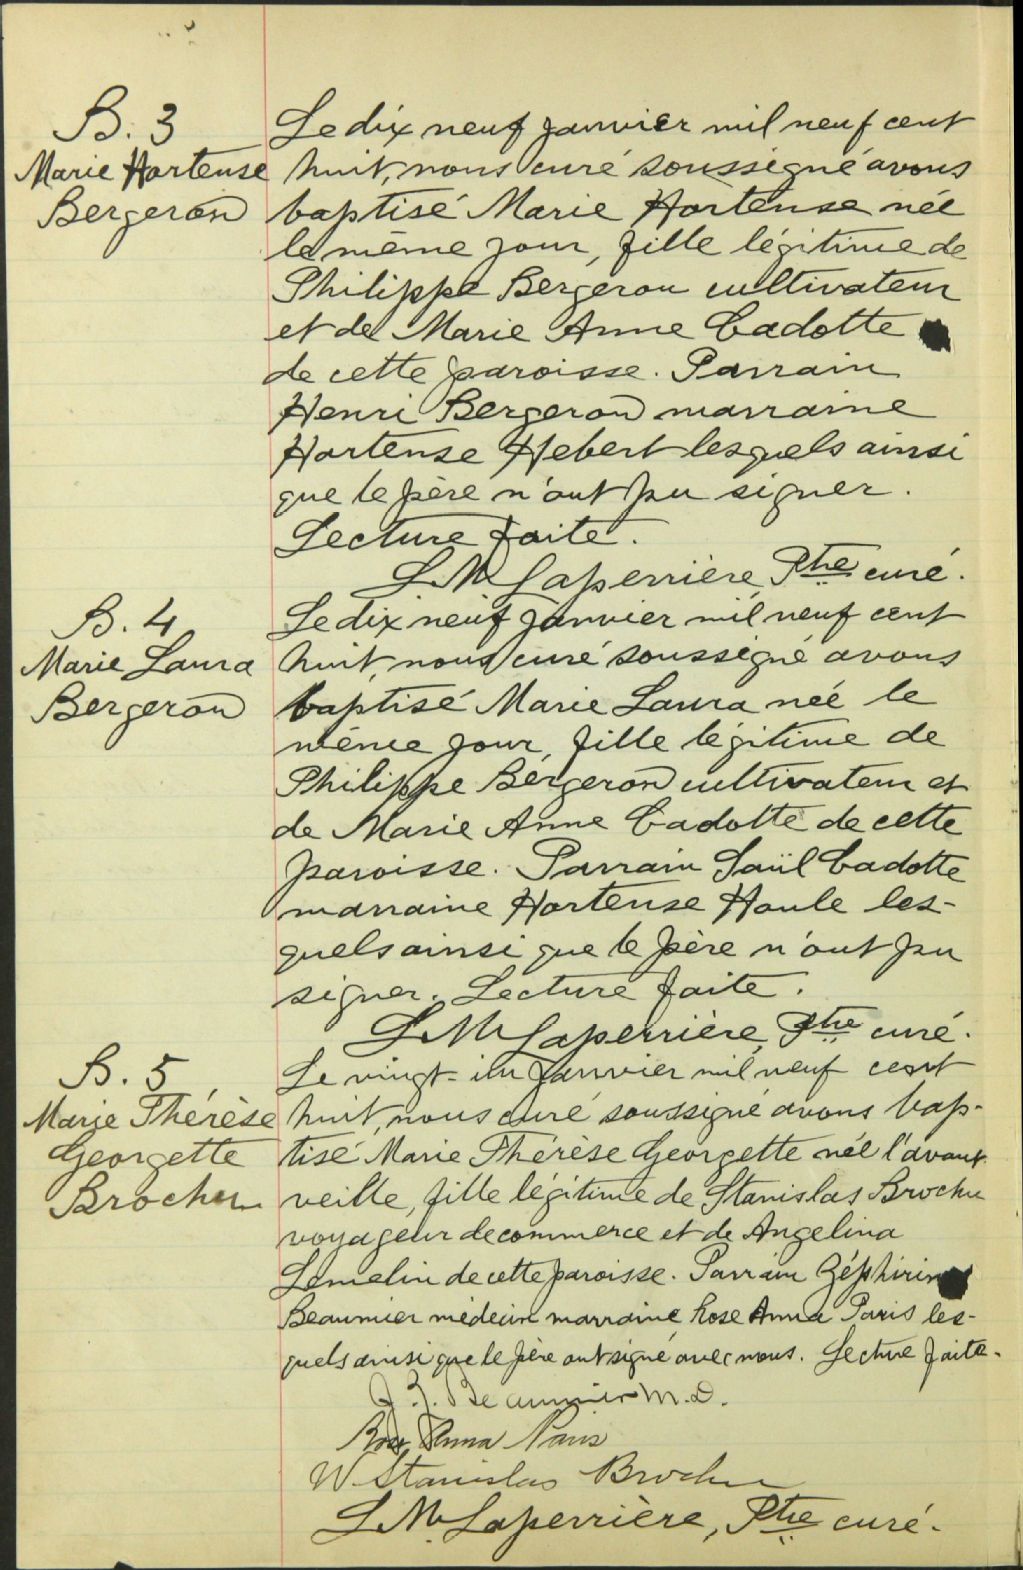 B. 3
Marie Hortense
Bergeron
Le dix neuf janvier mil neuf cent
huit, nous curé soussigné avons
baptisé Marie Hortense née
le même jour, fille légitime de
Philippe Bergeron cultivateur
et de Marie Anne Cadotte
de cette paroisse. Parrain
Henri Bergeron marraine
Hortense Hebert lesquels ainsi
que le père n'ont pu signer.
Lecture faite.
L M Laperrière, Ptre curé.
B. 4
Marie Laura
Bergeron
Le dix neuf janvier mil neuf cent
huit, nous curé soussigné avons
baptisé Marie Laura née le
même jour, fille légitime de
Philippe Bergeron cultivateur et
de Marie Anne Cadotte de cette
paroisse. Parrain Saül Cadotte
marraine Hortense Houle les-
quels ainsi que le père n'ont pu
signer. Lecture faite.
L M Laperrière, Ptre curé.
B. 5
Marie Thérèse
Georgette
Brochu
Le vingt-un janvier mil neuf cent
huit, nous curé soussigné avons bap-
tisé Marie Thérèse Georgette née l'avant
veille, fille légitime de Stanislas Brochu
voyageur de commerce et de Angelina
Lemelin de cette paroisse. Parrain Zéphirin
Beaumier médecin marraine Rose Anna Paris les-
quels ainsi que le père ont signé avec nous. Lecture faite.
J. Z. Beaumier M.D.
Rose Anna Paris
W Stanislas Brochu
L M Laperrière, Ptre curé.